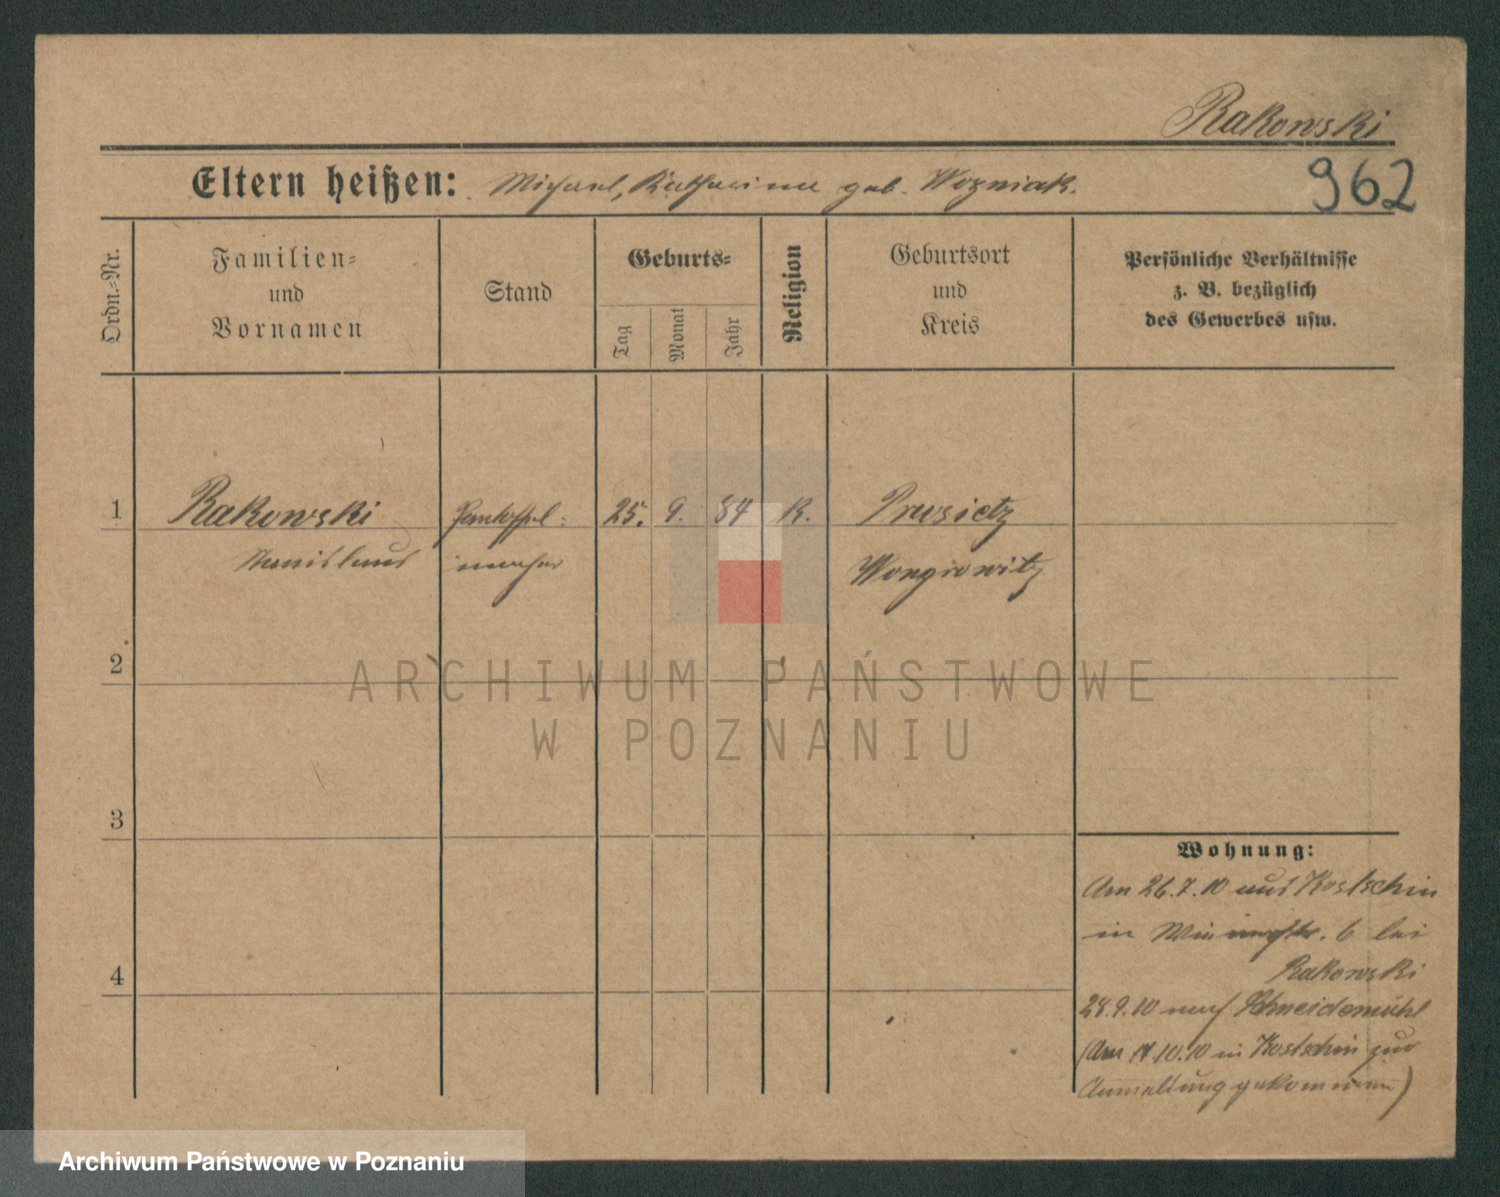 Rakowski
Eltern heißen: Michael, Katharina geb. Wozniak.
962
Ordn.-Nr.
Familien-
und
Vornamen
Stand
Geburts-
Tag
Monat
Jahr
Religion
Geburtsort
und
Kreis
Persönliche Verhältnisse
z. B. bezüglich
des Gewerbes usw.
1 Rakowski Pantoffel- 25. 9. 84 K. Prusietz
Stanislaus macher Wongrowitz
2
3
4
Wohnung:
Am 26.7.10 aus Kostschin
in 6 bei
Rakowski
28.9.10 nach Schneidemühl
(Am 10.10 in Kostschin zur
Anmeldung gekommen)
ARCHIWUM PAŃSTWOWE
W POZNANIU
Archiwum Państwowe w Poznaniu